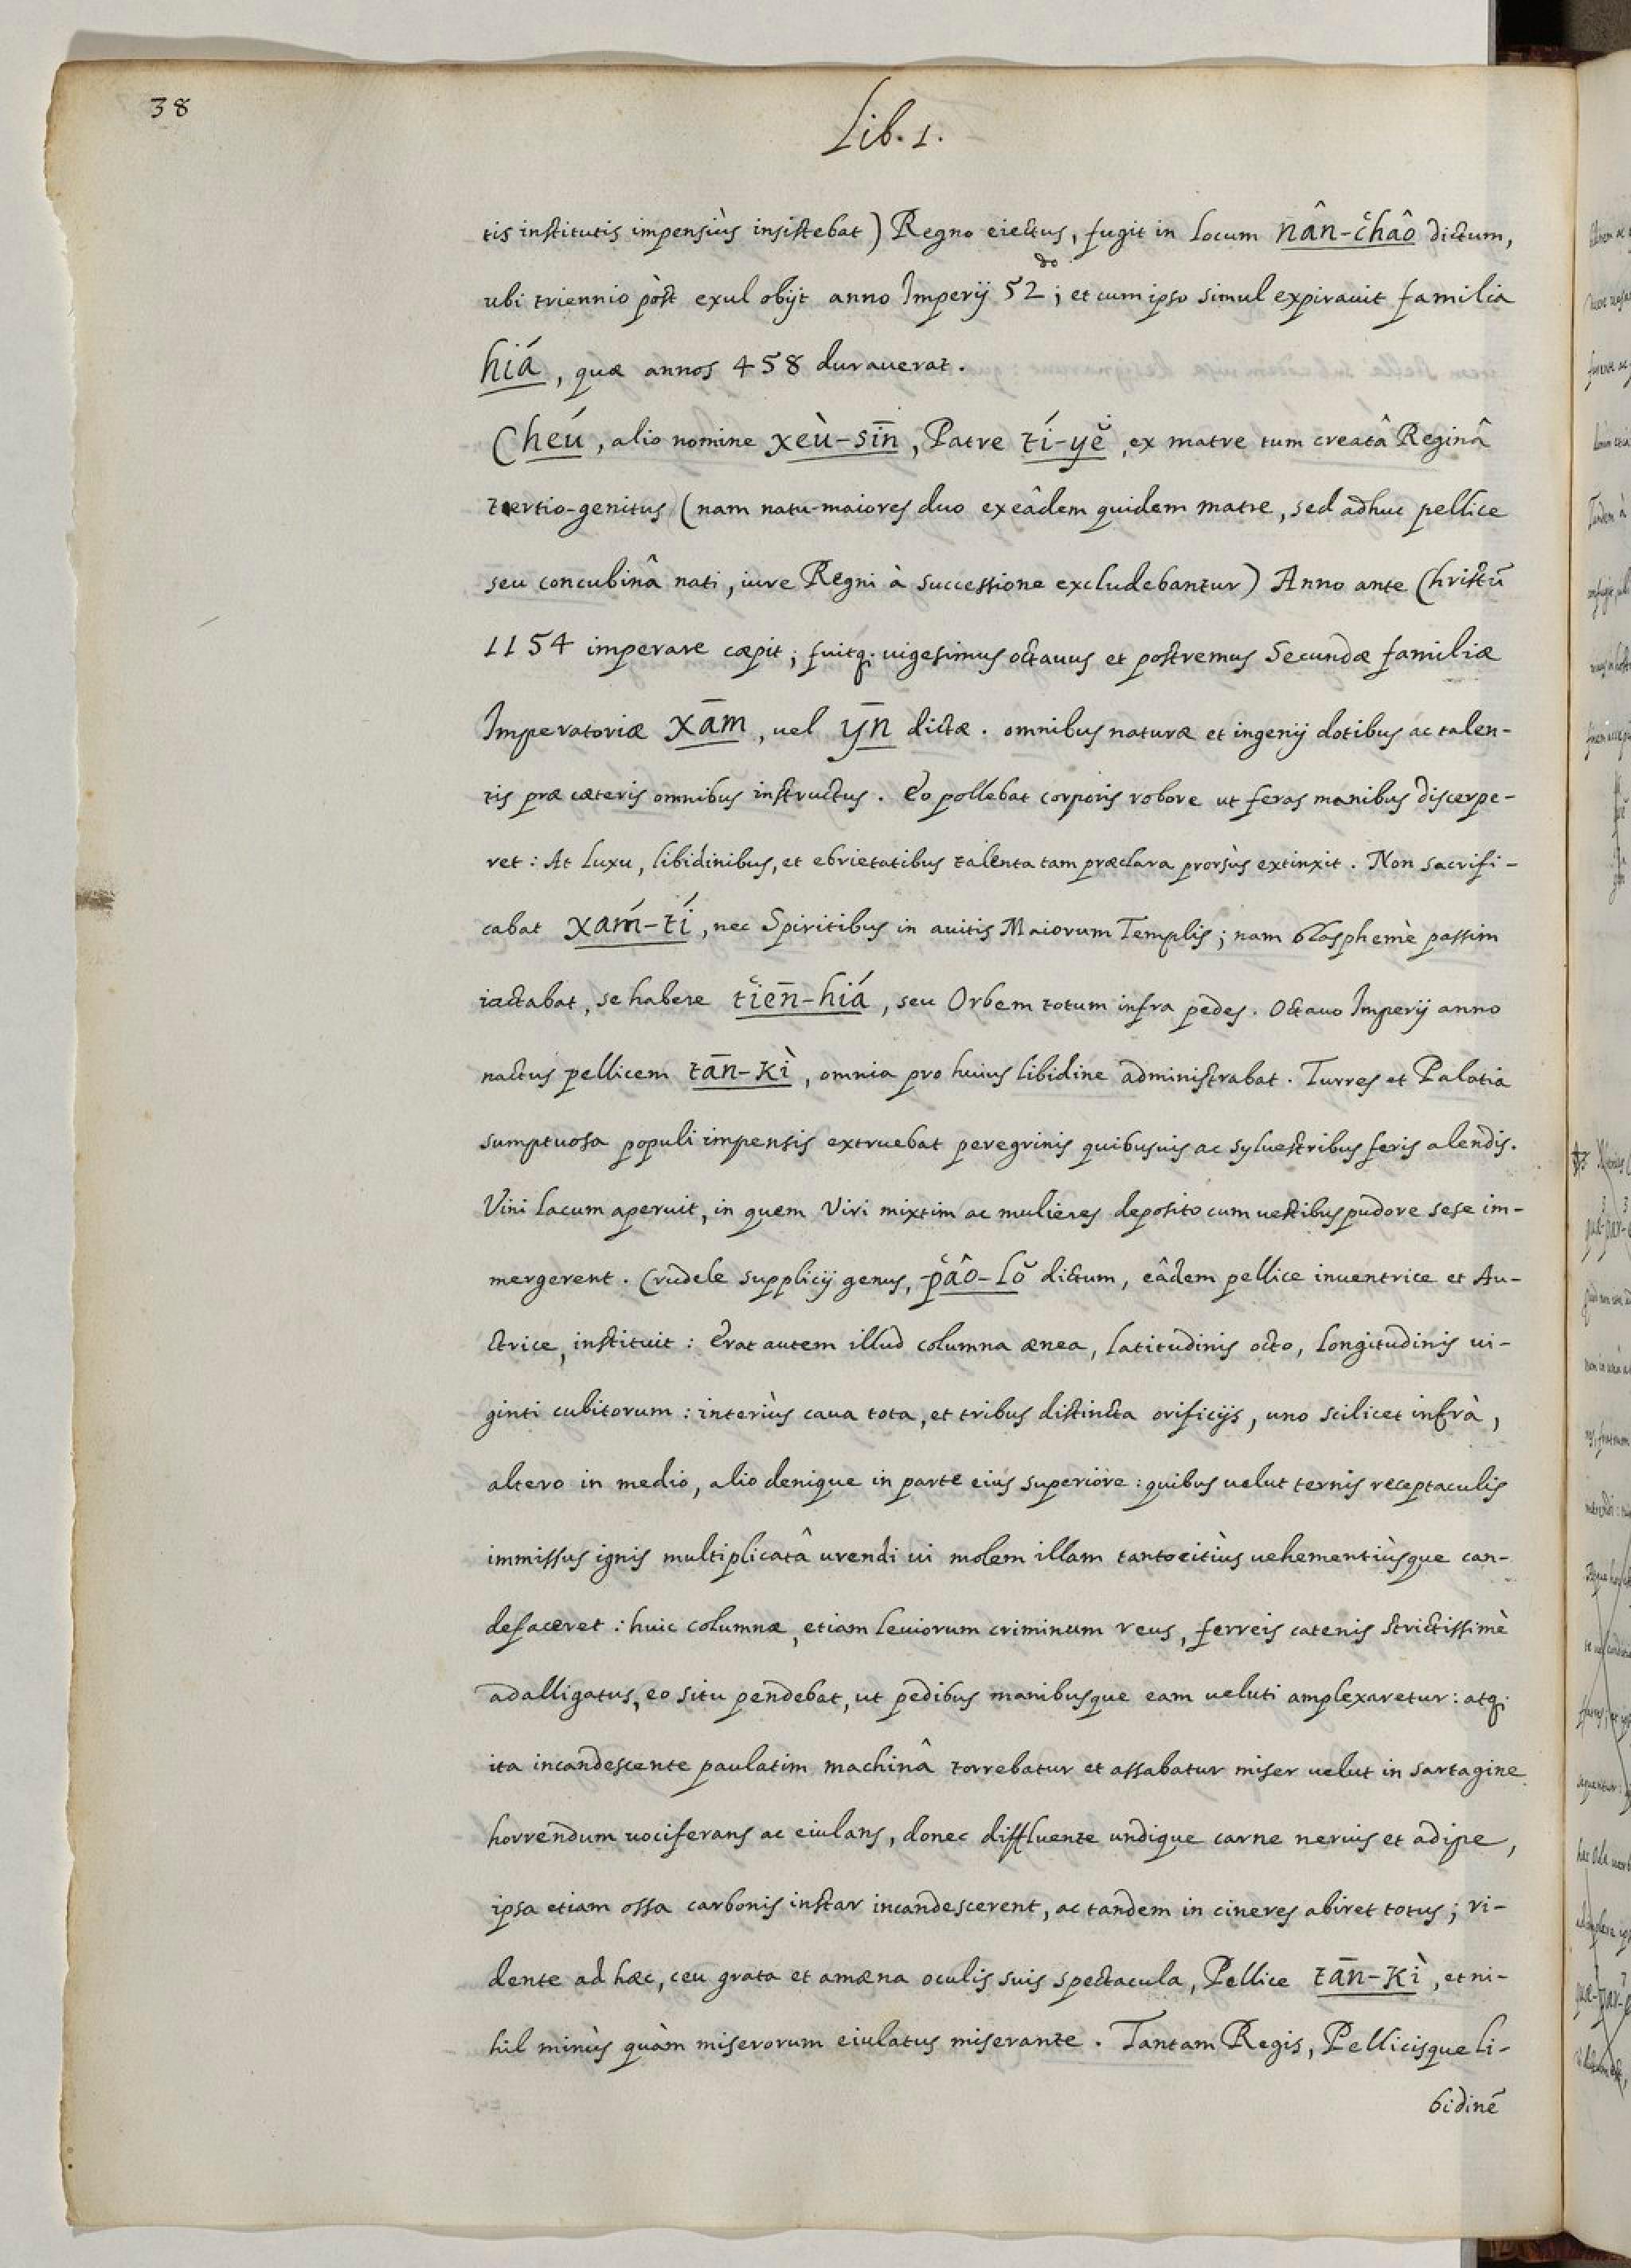 38
Lib. 1.
tis institutis impensiùs insistebat) Regno eiectus, fugit in Locum nân-c̔hâo dictum,
ubi triennio pòst exul obijt anno Imperij 52do; et cum ipso simul expirauit familia
hiá, quæ annos 458 durauerat.
Cheú, alio nomine xeù-sīn, Patre tí-yĕ, ex matre tum creatâ Reginâ
tertio-genitus (nam natu-maiores duo ex eâdem quidem matre, sed adhuc pellice
seu concubinâ nati, iure Regni à successione excludebantur) Anno ante Christū
1154 imperare cæpit; fuitq; uigesimus octauus et postremus Secundæ familiæ
Imperatoriæ xām, uel ȳn dictæ. omnibus naturæ et ingenij dotibus ac talen-
tis præ cæteris omnibus instructus. Eo pollebat corporis robore ut feras manibus discerpe-
ret: At luxu, libidinibus, et ebrietatibus talenta tam præclara prorsùs extinxit. Non sacrifi-
cabat xaḿ-tí, nec Spiritibus in auitis Maiorum Templis; nam blasphemè passim
iactabat, se habere t̔ien̄-hiá, seu Orbem totum infra pedes. Octauo Imperij anno
nactus pellicem tān-kì, omnia pro huius libidine administrabat. Turres et Palatia
sumptuosa populi impensis extruebat peregrinis quibusuis ac syluestribus feris alendis.
Vini lacum aperuit, in quem Viri mixtim ac mulieres deposito cum uestibus pudore sese im-
mergerent. Crudele supplicij genus, p̔âo-lŏ dictum, eâdem pellice inuentrice et Au-
ctrice, instituit: Erat autem illud columna ænea, latitudinis octo, longitudinis ui-
ginti cubitorum: interiùs caua tota, et tribus distincta orificijs, uno scilicet infrà,
altero in medio, alio denique in parte eius superiore: quibus uelut ternis receptaculis
immissus ignis multiplicatâ urendi ui molem illam tanto citiùs uehementiùsque can-
defaceret: huic columnæ, etiam leuiorum criminum reus, ferreis catenis strictissimè
adalligatus, eo situ pendebat, ut pedibus manibusque eam ueluti amplexaretur: atq;
ita incandescente paulatim machinâ torrebatur et assabatur miser uelut in sartagine
horrendum uociferans ac eiulans, donec diffluente undique carne neruis et adipe,
ipsa etiam ossa carbonis instar incandescerent, ac tandem in cineres abiret totus; ri-
dente ad hæc, ceu grata et amæna oculis suis spectacula, Pellice tān-kì, et ni-
hil minùs quàm miserorum eiulatus miserante. Tantam Regis, Pellicisque li-
bidinē